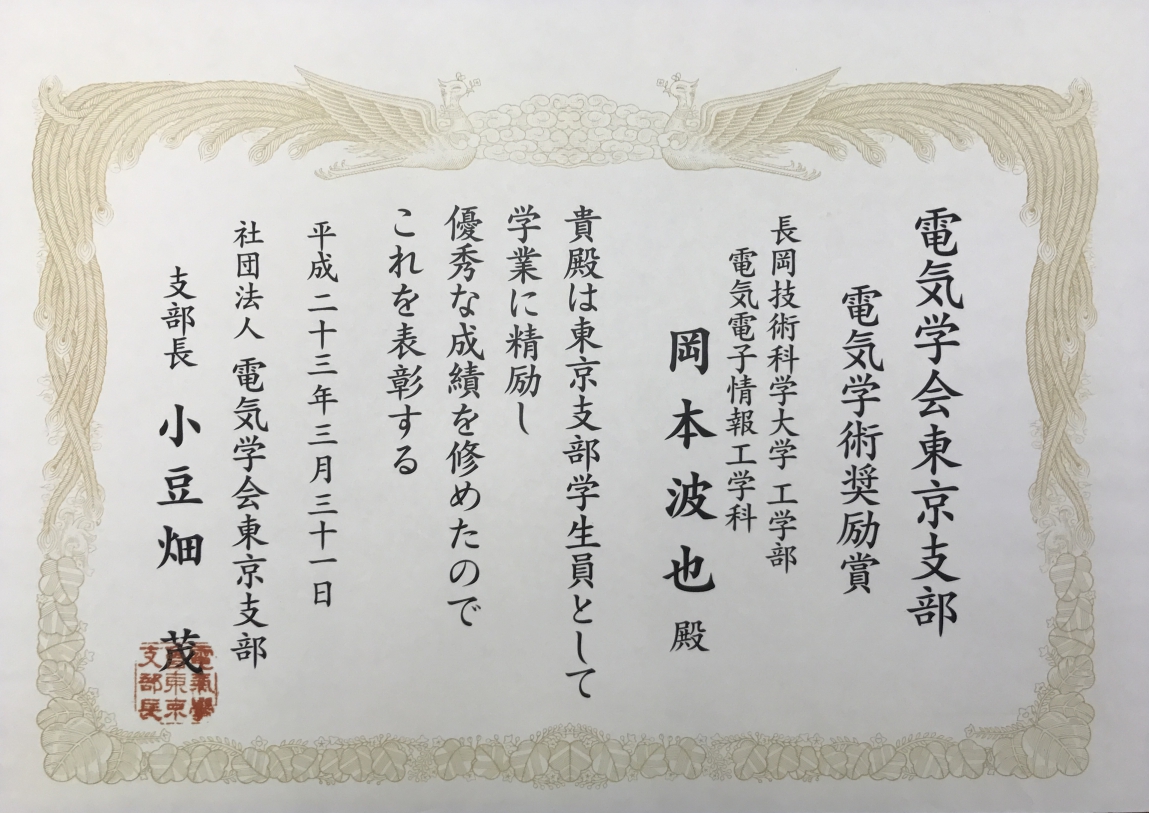 電気学会東京支部
電気学術奨励賞
長岡技術科学大学 工学部
電気電子情報工学科
岡本波也 殿
貴殿は東京支部学生員として
学業に精励し
優秀な成績を修めたので
これを表彰する
平成二十三年三月三十一日
社団法人 電気学会東京支部
支部長 小豆畑 茂